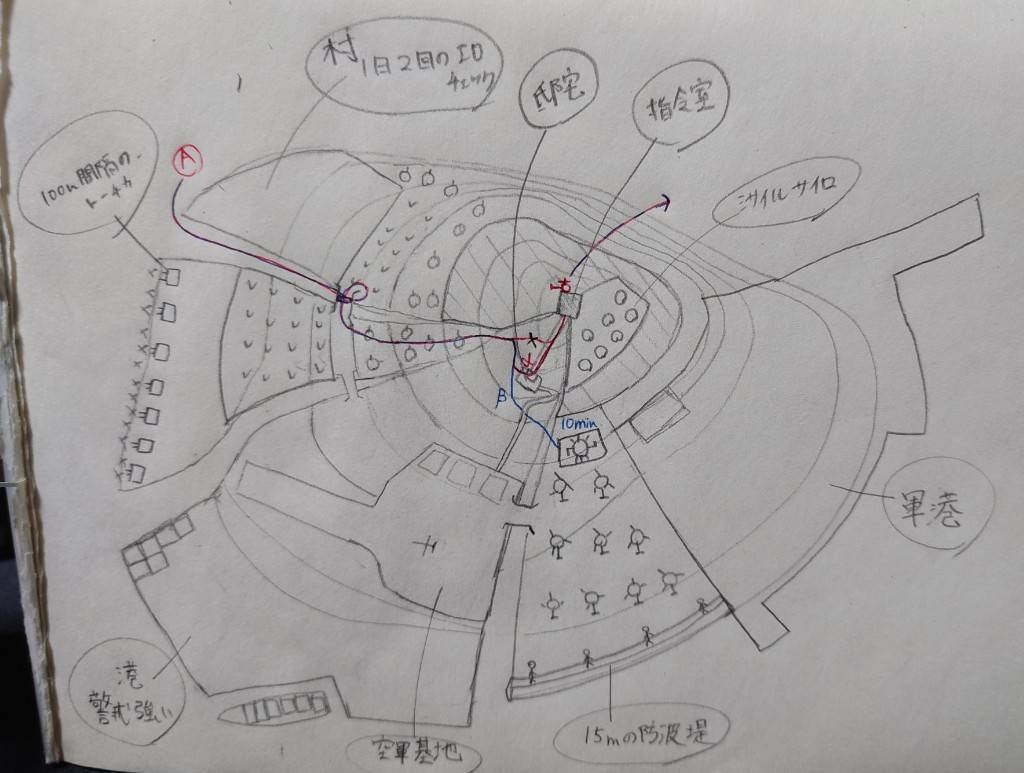 村
1日2回のID
チェック
邸宅
指令室
100m間隔の
トーチカ
A
ミサイルサイロ
B
10min
軍港
港
警戒強い
空軍基地
15mの防波堤